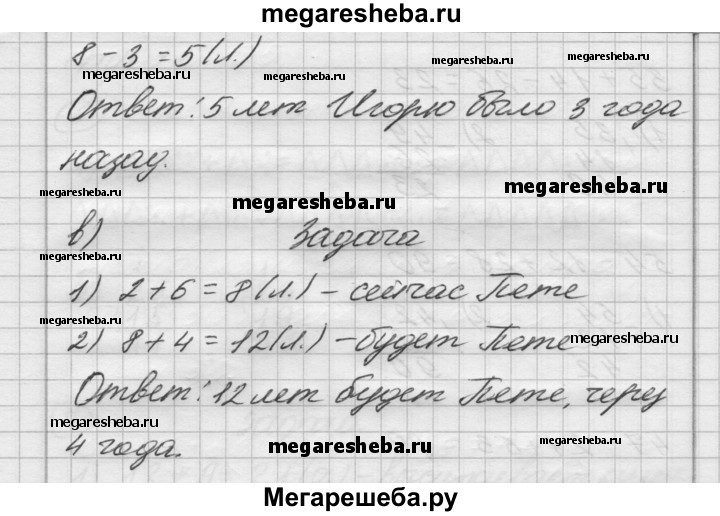 megaresheba.ru
8 - 3 = 5 (л.)
megaresheba.ru megaresheba.ru megaresheba.ru
Ответ: 5 лет Игорю было 3 года
назад.
megaresheba.ru megaresheba.ru megaresheba.ru
в) Задача
megaresheba.ru
1) 2 + 6 = 8 (л.) - сейчас Пете
megaresheba.ru megaresheba.ru
2) 8 + 4 = 12 (л.) - будет Пете
megaresheba.ru
Ответ: 12 лет будет Пете, через
megaresheba.ru
4 года.
megaresheba.ru megaresheba.ru
Мегарешеба.ру